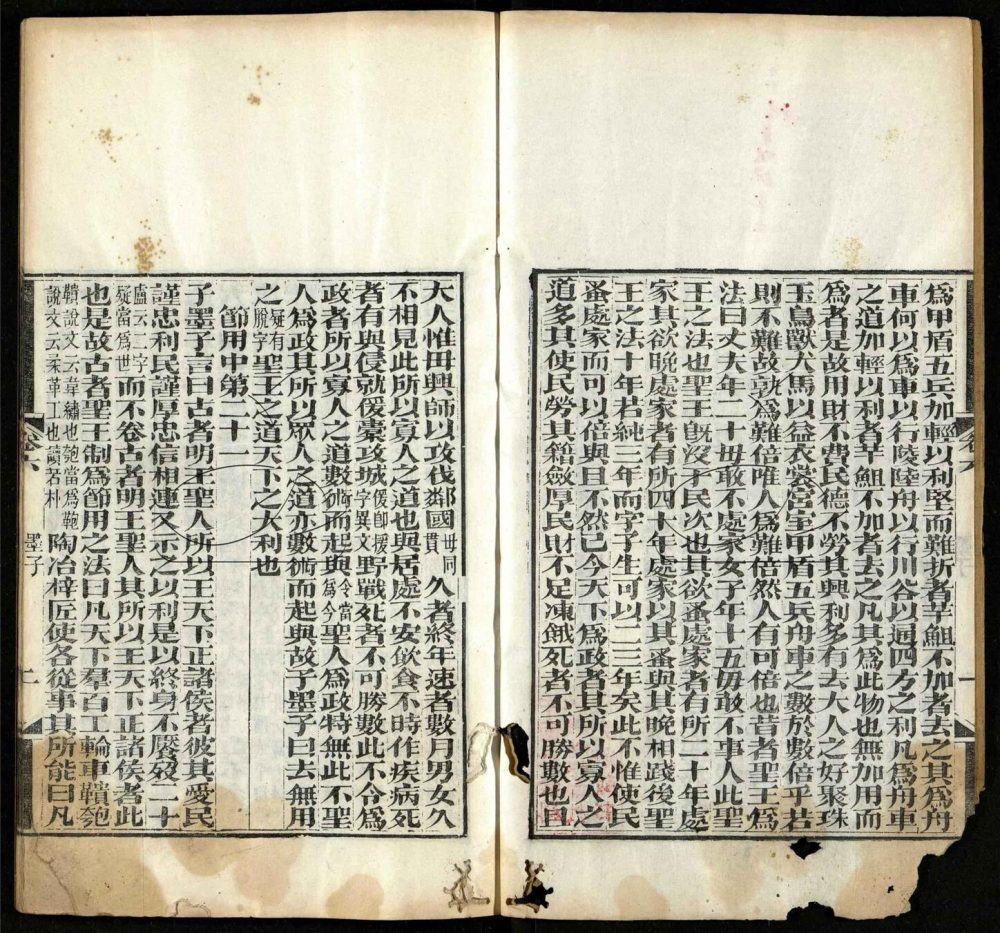 爲甲盾五兵加輕以利堅而難折者芊䱉不加者去之其爲舟
車何以爲車以行陵陸舟以行川谷以通四方之利凡爲舟車
之道加輕以利者芊䱉不加者去之凡其爲此物也無加用而
爲者是故用財不費民德不勞其興利多有去大人之好聚珠
玉鳥獸犬馬以益衣裳宮室甲盾五兵舟車之數於數倍乎若
則不難故孰爲難倍唯人爲難倍然人有可倍也昔者聖王爲
法曰丈夫年二十毋敢不處家女子年十五毋敢不事人此聖
王之法也聖王旣沒于民次也其欲蚤處家者有所二十年處
家其欲晚處家者有所四十年處家以其蚤與其晚相踐後聖
王之法十年若純三年而字子生可以二三年矣此不惟使民
蚤處家而可以倍與且不然已今天下爲政者其所以寡人之
道多其使民勞其籍斂厚民財不足凍餓死者不可勝數也且
卷六
一
大人惟毌興師以攻伐鄰國毌同貫久者終年速者數月男女久
不相見此所以寡人之道也與居處不安飮食不時作疾病死
者有與侵就偄橐攻城偄卽援字異文野戰死者不可勝數此不令爲
政者所以寡人之道數術而起與令當爲今聖人爲政特無此不聖
人爲政其所以眾人之道亦數術而起與故子墨子曰去無用
之疑有脫字聖王之道天下之大利也
節用中第二十一
子墨子言曰古者明王聖人所以王天下正諸侯者彼其愛民
謹忠利民謹厚忠信相連又示之以利是以終身不饜歿二十
盧云二字疑當爲世而不卷古者明王聖人其所以王天下正諸侯者此
也是故古者聖王制爲節用之法曰凡天下羣百工輪車鞼匏
鞼說文云韋繡也匏當爲鞄說文云柔革工也讀若朴陶冶梓匠使各從事其所能曰凡
卷六
墨子
二